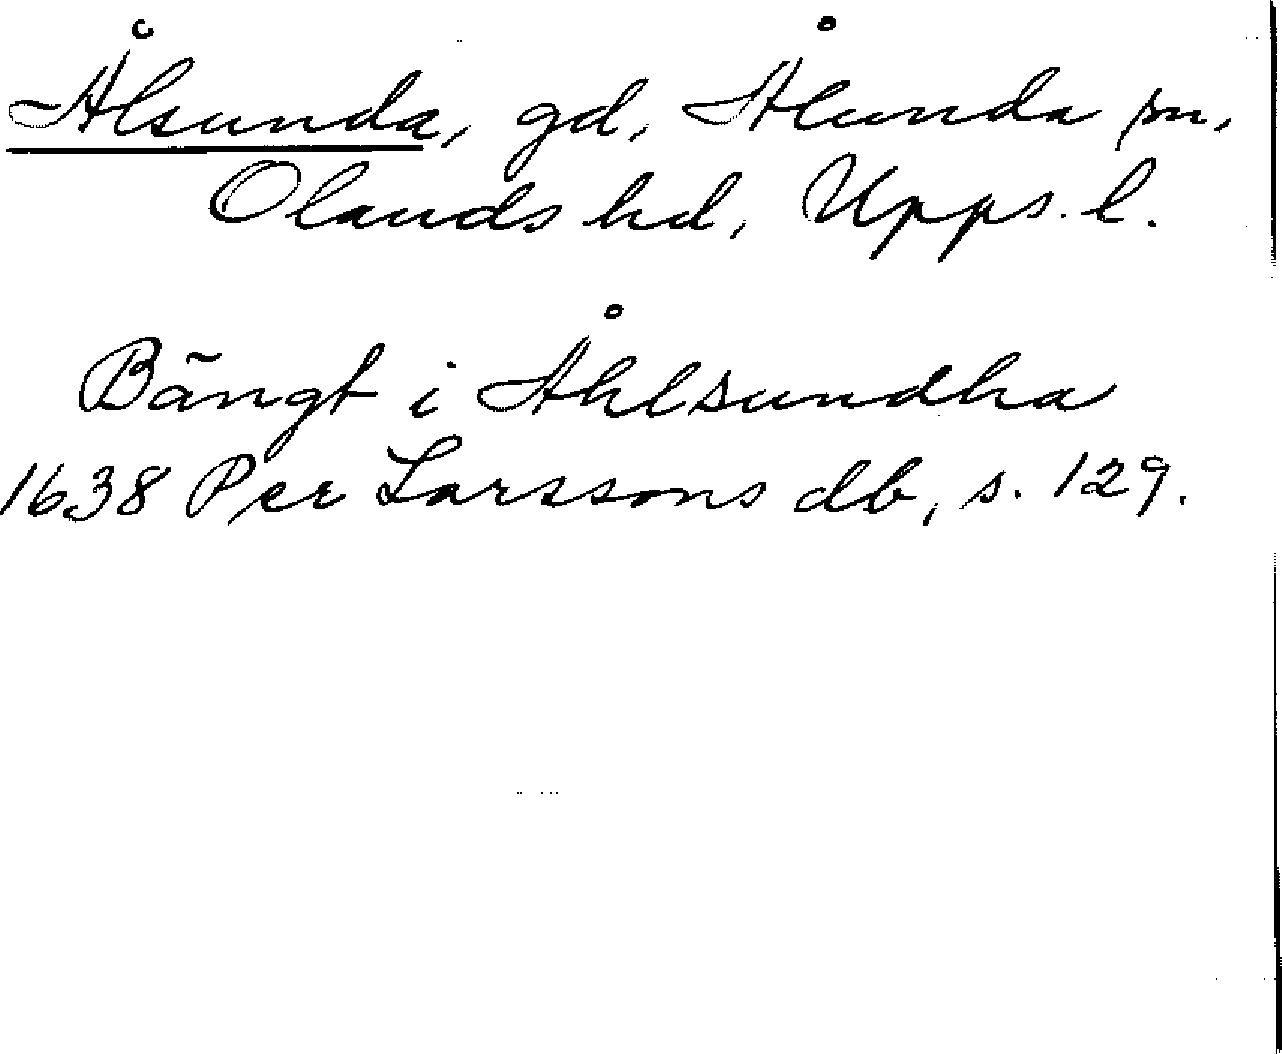 Ålsunda, gd, Ålunda sn,
Olands hd, Upps. l.
Bãngt i Åhlsundha
1638 Per Larssons db, s. 129.